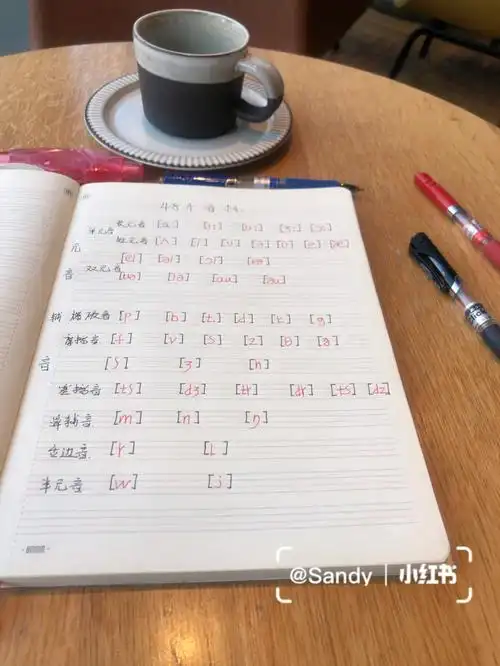 48个音标
单元音 长元音 [ɑː] [iː] [uː] [ɜː] [ɔː]
短元音 [ʌ] [ɪ] [ʊ] [ə] [ɒ] [e] [æ]
元
[eɪ] [aɪ] [ɔɪ]
音 双元音 [ʊə] [ɪə] [au] [əu]
辅 爆破音 [p] [b] [t] [d] [k] [g]
摩擦音 [f] [v] [s] [z] [θ]
音 [ʃ] [ʒ] [h]
破擦音 [tʃ] [dʒ] [tr] [dr] [ts] [dz]
鼻辅音 [m] [n] [ŋ]
旁边音 [r] [l]
半元音 [w] [j]
@Sandy | 小红书